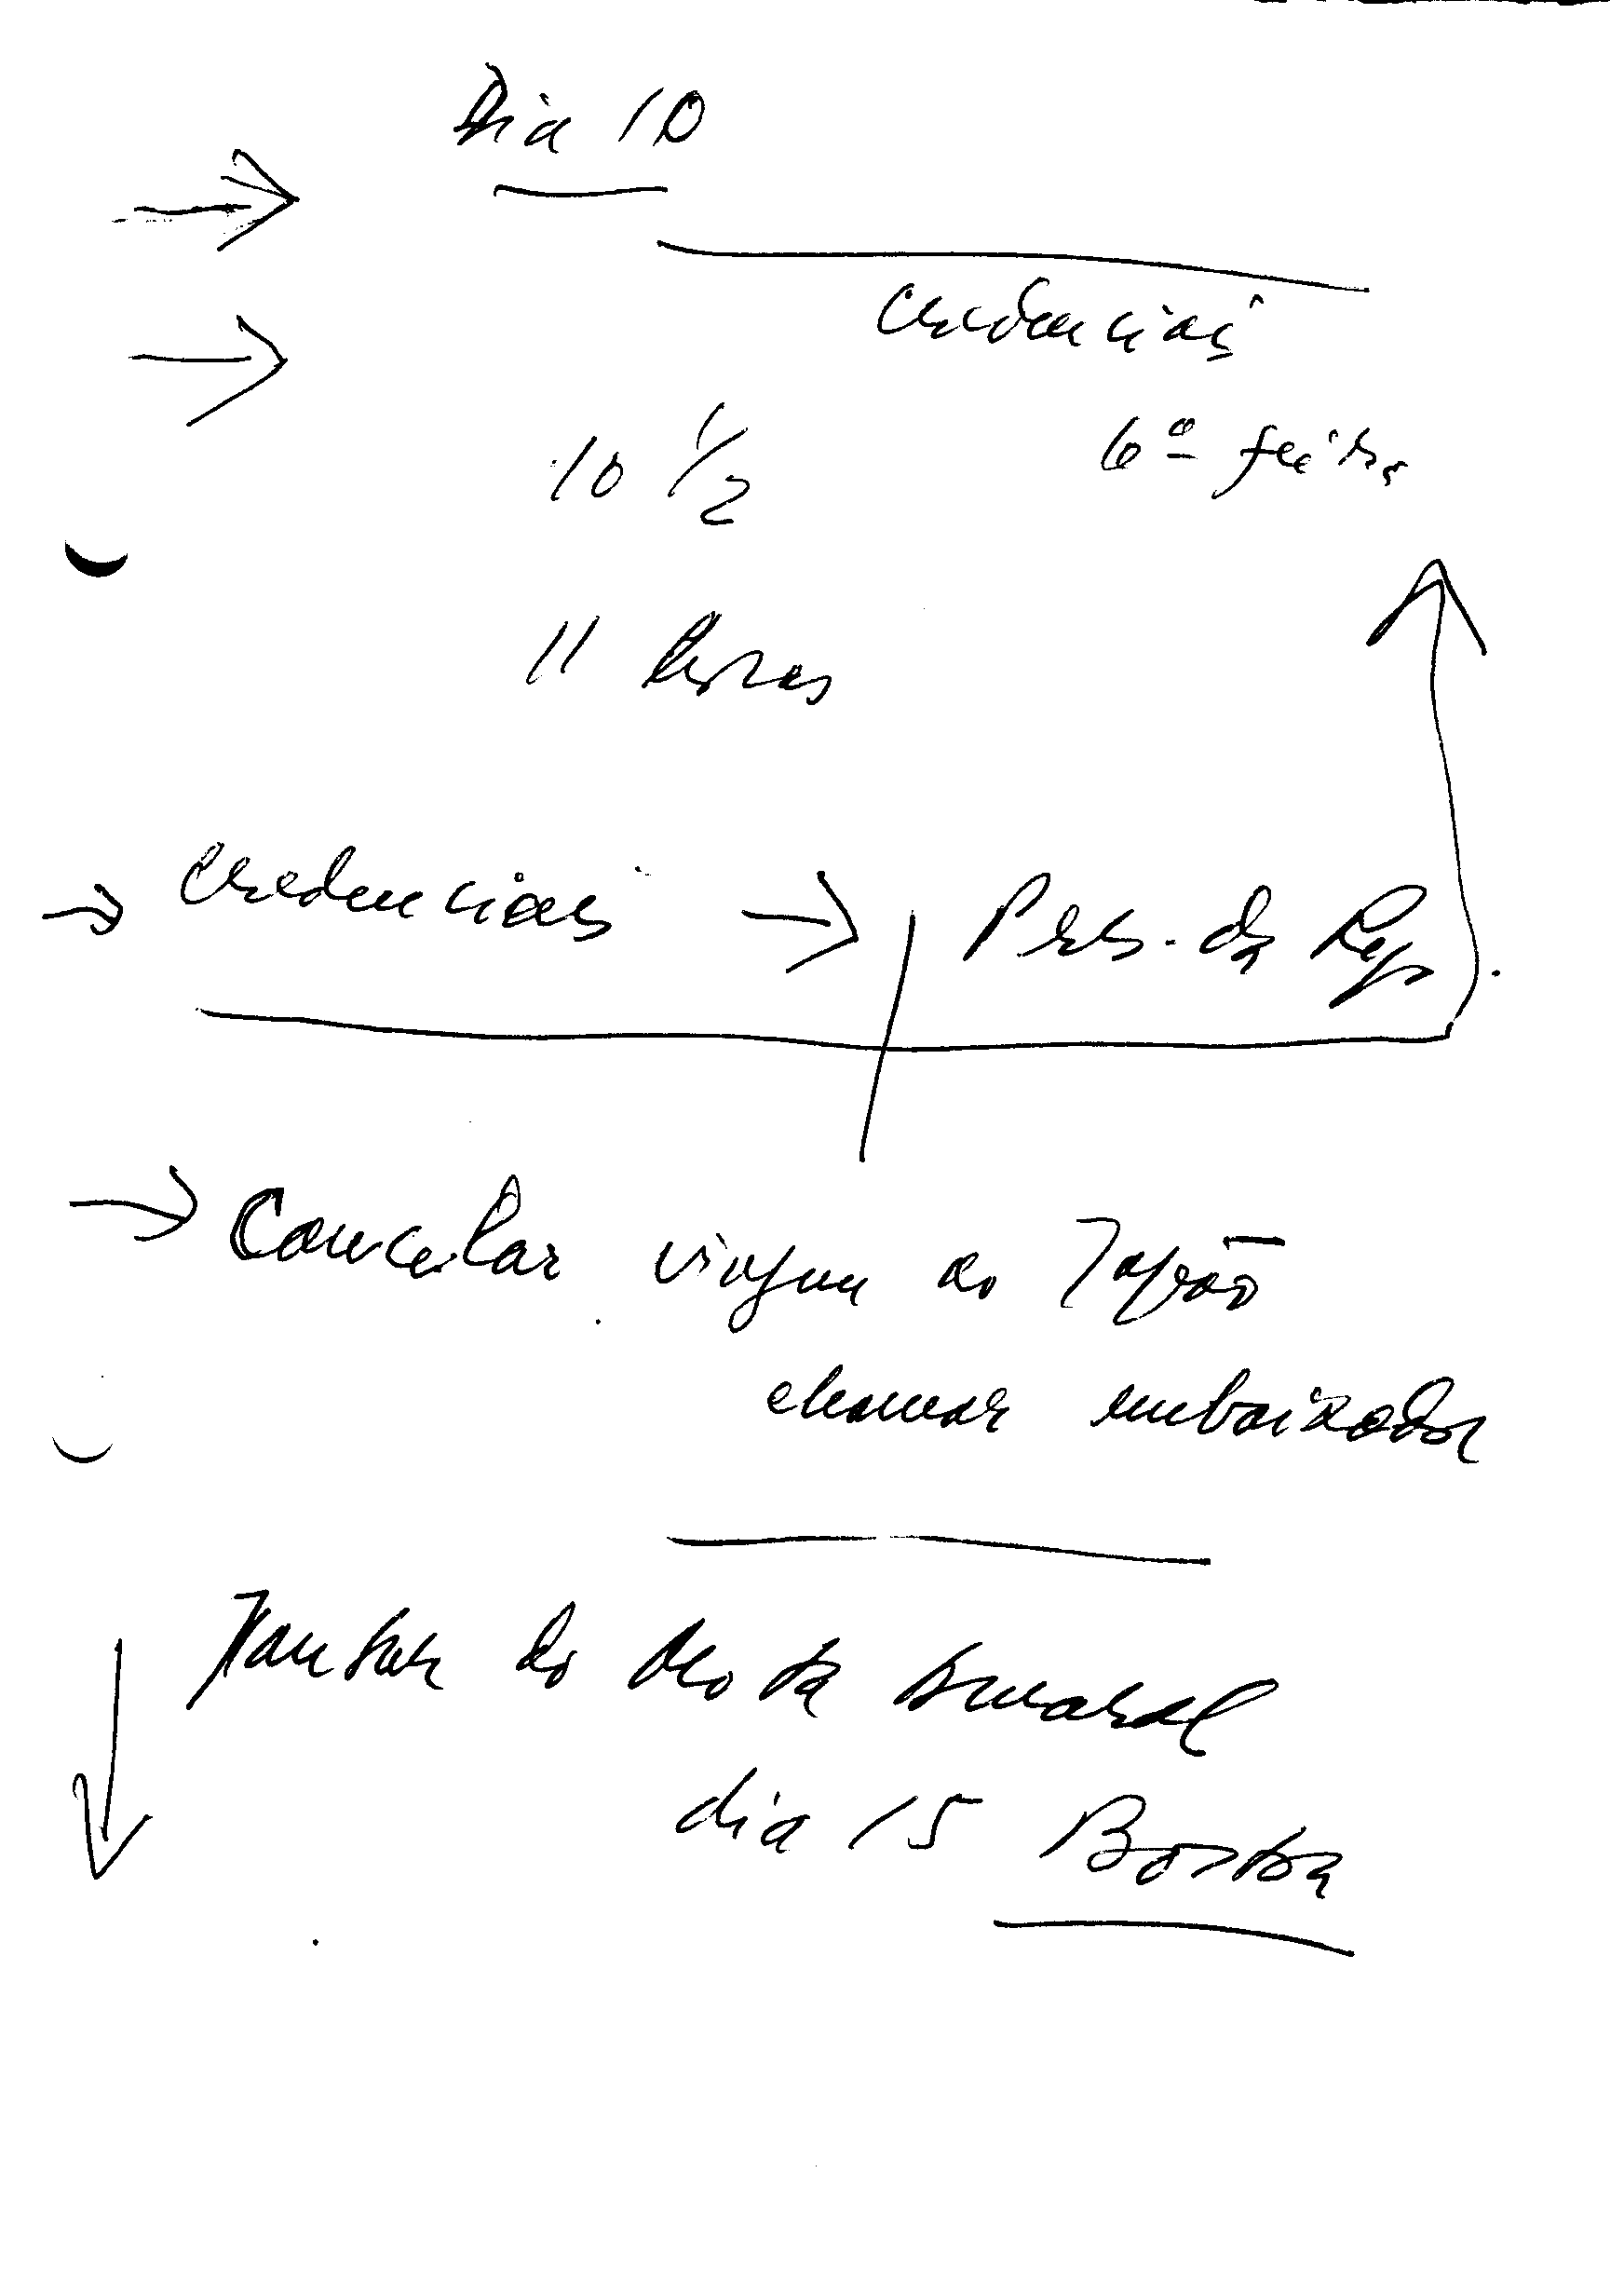 Dia 10
credenciais
10 1/2
6ª feira
11 horas
credenciais Pres. da Rep.
Cancelar viagem ao Japão
chamar embaixador
Jantar do Mota Amaral
dia 15